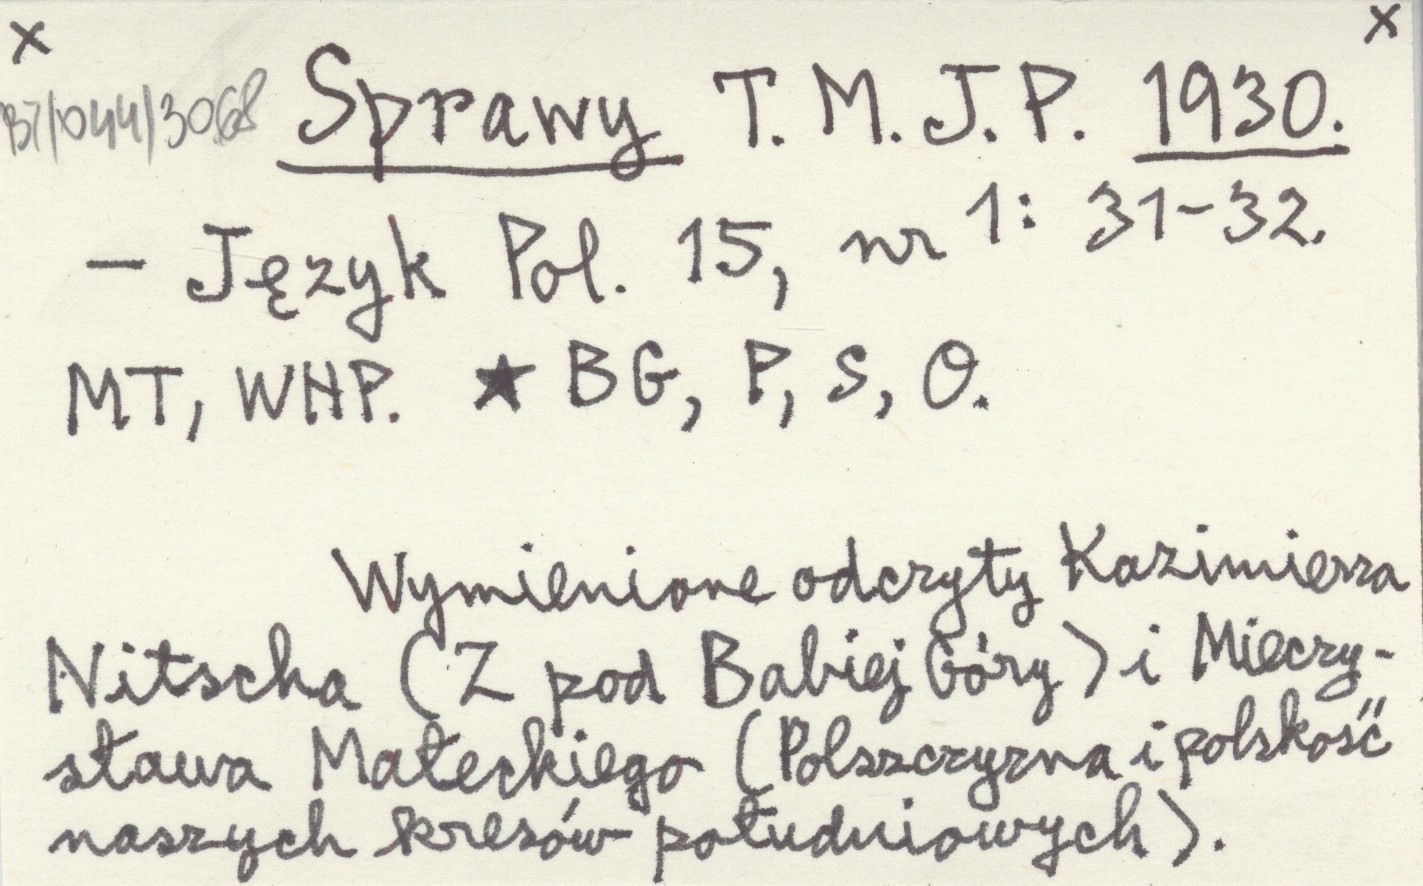 x x
B7/044/3068 Sprawy T. M. J. P. 1930.
– Język Pol. 15, nr 1: 31-32.
MT, WHP. ★ BG, P, S, O.
Wymienione odczyty Kazimierza
Nitscha (Z pod Babiej Góry) i Mieczy-
sława Małeckiego (Polszczyzna i polskość
naszych kresów południowych).